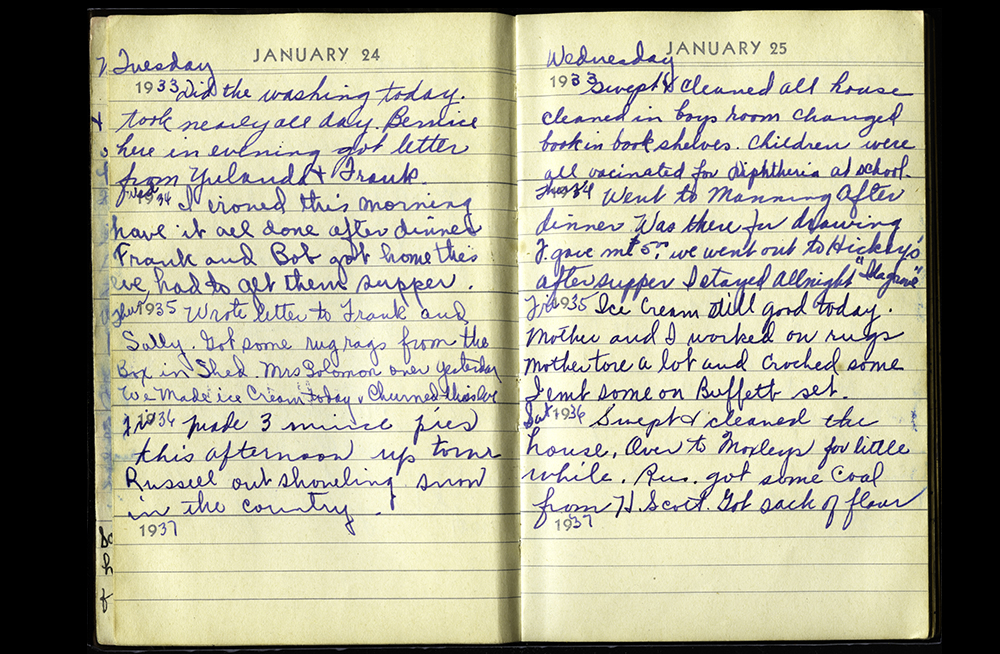 JANUARY 24
Tuesday
1933 Did the washing today.
took nearly all day. Bernice
here in evening got letter
from Yulanda & Frank.
Wed 1934 I ironed this morning
have it all done after dinner
Frank and Bob got home this
eve, had to get them supper.
Thur 1935 Wrote letter to Frank and
Sally. Got some rug rags from the
Box in Shed. Mrs Solomon over yesterday
We Made ice Cream today & Churned this eve
Fri 1936 made 3 mince pies
this afternoon up town
Russell out shoveling snow
in the country.
1937
Sc
h
f
JANUARY 25
Wednesday
1933 Swept & cleaned all house
cleaned in boys room changed
book in book shelves. Children were
all vacinated for Diphtheria at school.
Thur 1934 Went to Manning After
dinner Was there for drawing
F. gave me $5. we went out to Hickey's
after supper I stayed All night
Fri 1935 Ice Cream still good today.
Mother and I worked on rugs
Mother tore a lot and croched some
I emb some on Buffett set.
Sat 1936 Swept & cleaned the
house, Over to Moxleys for little
while. Rus. got some Coal
from H. Scott. Got sack of flour
1937